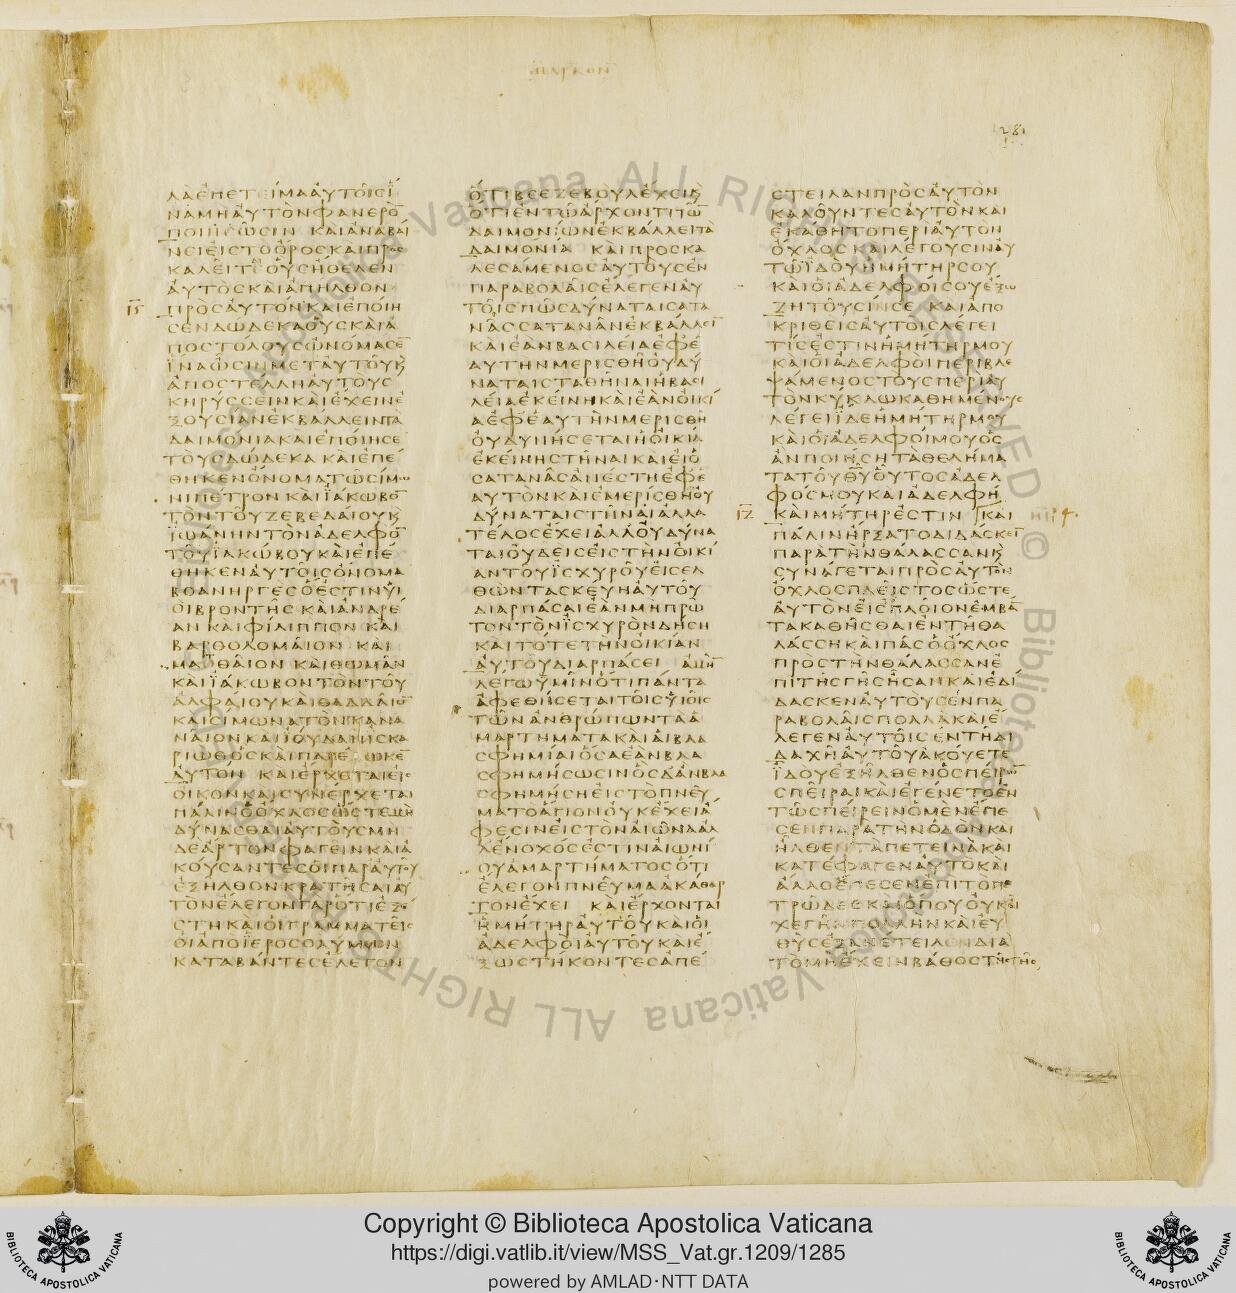 1281
ΛΑΕΠΕΤΕΙΜΑΑΥΤΟΙΣΙ
ΝΑΜΗΑΥΤΟΝΦΑΝΕΡΟ̅
ΠΟΙΗΣΩΣΙΝ ΚΑΙΑΝΑΒΑΙ
ΝΕΙΕΙΣΤΟΟΡΟΣΚΑΙΠΡΟΣ
ΚΑΛΕΙΤΑΙΟΥΣΗΘΕΛΕΝ
ΑΥΤΟΣΚΑΙΑΠΗΛΘΟΝ
Ις ΠΡΟΣΑΥΤΟΝΚΑΙΕΠΟΙΗ
ΣΕΝΔΩΔΕΚΑΟΥΣΚΑΙΑ
ΠΟΣΤΟΛΟΥΣΩΝΟΜΑΣΕ̅
ΙΝΑΩΣΙΝΜΕΤΑΥΤΟΥΚ
ΑΠΟΣΤΕΛΛΗΑΥΤΟΥΣ
ΚΗΡΥΣΣΕΙΝΚΑΙΕΧΕΙΝΕ
ΞΟΥΣΙΑΝΕΚΒΑΛΛΕΙΝΤΑ
ΔΑΙΜΟΝΙΑΚΑΙΕΠΟΙΗΣΕ
ΤΟΥΣΔΩΔΕΚΑ ΚΑΙΕΠΕ
ΘΗΚΕΝΟΝΟΜΑΤΩΣΙΜΩ
ΝΙΠΕΤΡΟΝ ΚΑΙΪΑΚΩΒΟ̅
ΤΟΝΤΟΥΖΕΒΕΔΑΙΟΥΚ
ΪΩΑΝΗΝΤΟΝΑΔΕΛΦΟ̅
ΤΟΥΪΑΚΩΒΟΥΚΑΙΕΠΕ
ΘΗΚΕΝΑΥΤΟΙΣΟΝΟΜΑ
ΒΟΑΝΗΡΓΕΣΟΕΣΤΙΝΥΙ
ΟΙΒΡΟΝΤΗΣ ΚΑΙΑΝΔΡΕ
ΑΝ ΚΑΙΦΙΛΙΠΠΟΝ ΚΑΙ
ΒΑΡΘΟΛΟΜΑΙΟΝ ΚΑΙ
ΜΑΘΘΑΙΟΝ ΚΑΙΘΩΜΑΝ
ΚΑΙΪΑΚΩΒΟΝΤΟΝΤΟΥ
ΑΛΦΑΙΟΥΚΑΙΘΑΔΔΑΙΟ̅
ΚΑΙΣΙΜΩΝΑΤΟΝΚΑΝΑ
ΝΑΙΟΝΚΑΙΪΟΥΔΑΝΪΣΚΑ
ΡΙΩΘΟΣΚΑΙΠΑΡΕΔΩΚΕ̅
ΑΥΤΟΝ ΚΑΙΕΡΧΕΤΑΙΕΙΣ
ΟΙΚΟΝΚΑΙΣΥΝΕΡΧΕΤΑΙ
ΠΑΛΙΝΟΟΧΛΟΣΩΣΤΕΜΗ
ΔΥΝΑΣΘΑΙΑΥΤΟΥΣΜΗ
ΔΕΑΡΤΟΝΦΑΓΕΙΝΚΑΙΑ
ΚΟΥΣΑΝΤΕΣΟΙΠΑΡΑΥΤΟΥ
ΕΞΗΛΘΟΝΚΡΑΤΗΣΑΙΑΥ
ΤΟΝΕΛΕΓΟΝΓΑΡΟΤΙΕΞΕ
ΣΤΗΚΑΙΟΙΓΡΑΜΜΑΤΕΙΣ
ΟΙΑΠΟΪΕΡΟΣΟΛΥΜΩΝ
ΚΑΤΑΒΑΝΤΕΣΕΛΕΓΟΝ
ΟΤΙΒΕΕΖΕΒΟΥΛΕΧΕΙΚ
ΟΤΙΕΝΤΩΑΡΧΟΝΤΙΤΩ̅
ΔΑΙΜΟΝΙΩΝΕΚΒΑΛΛΕΙΤΑ
ΔΑΙΜΟΝΙΑ ΚΑΙΠΡΟΣΚΑ
ΛΕΣΑΜΕΝΟΣΑΥΤΟΥΣΕΝ
ΠΑΡΑΒΟΛΑΙΣΕΛΕΓΕΝΑΥ
ΤΟΙΣΠΩΣΔΥΝΑΤΑΙΣΑΤΑ
ΝΑΣΣΑΤΑΝΑΝΕΚΒΑΛΛΕΙ̅
ΚΑΙΕΑΝΒΑΣΙΛΕΙΑΕΦΕ
ΑΥΤΗΝΜΕΡΙΣΘΗΟΥΔΥ
ΝΑΤΑΙΣΤΑΘΗΝΑΙΗΒΑΣΙ
ΛΕΙΑΕΚΕΙΝΗΚΑΙΕΑΝΟΙΚΙ
ΑΕΦΕΑΥΤΗΝΜΕΡΙΣΘΗ
ΟΥΔΥΝΗΣΕΤΑΙΗΟΙΚΙΑ
ΕΚΕΙΝΗΣΤΗΝΑΙΚΑΙΕΙΟ
ΣΑΤΑΝΑΣΑΝΕΣΤΗΕΦΕ
ΑΥΤΟΝΚΑΙΕΜΕΡΙΣΘΗΟΥ
ΔΥΝΑΤΑΙΣΤΗΝΑΙΑΛΛΑ
ΤΕΛΟΣΕΧΕΙΑΛΛΟΥΔΥΝΑ
ΤΑΙΟΥΔΕΙΣΕΙΣΤΗΝΟΙΚΙ
ΑΝΤΟΥΪΣΧΥΡΟΥΕΙΣΕΛ
ΘΩΝΤΑΣΚΕΥΗΑΥΤΟΥ
ΔΙΑΡΠΑΣΑΙΕΑΝΜΗΠΡΩ
ΤΟΝΤΟΝΪΣΧΥΡΟΝΔΗΣΗ
ΚΑΙΤΟΤΕΤΗΝΟΙΚΙΑΝ
ΑΥΤΟΥΔΙΑΡΠΑΣΕΙ ΑΜΗΝ
ΛΕΓΩΥΜΙΝΟΤΙΠΑΝΤΑ
ΑΦΕΘΗΣΕΤΑΙΤΟΙΣΥΙΟΙΣ
ΤΩΝΑΝΘΡΩΠΩΝΤΑΑ
ΜΑΡΤΗΜΑΤΑΚΑΙΑΙΒΛΑ
ΣΦΗΜΙΑΙΟΣΑΕΑΝΒΛΑ
ΣΦΗΜΗΣΩΣΙΝΟΣΔΑΝΒΛΑ
ΣΦΗΜΗΣΗΕΙΣΤΟΠΝΕΥ
ΜΑΤΟΑΓΙΟΝΟΥΚΕΧΕΙΑ
ΦΕΣΙΝΕΙΣΤΟΝΑΙΩΝΑΑΛ
ΛΕΝΟΧΟΣΕΣΤΙΝΑΙΩΝΙ
ΟΥΑΜΑΡΤΗΜΑΤΟΣΟΤΙ
ΕΛΕΓΟΝΠΝΕΥΜΑΑΚΑΘΑΡ
ΤΟΝΕΧΕΙ ΚΑΙΕΡΧΟΝΤΑΙ
ΗΜΗΤΗΡΑΥΤΟΥΚΑΙΟΙ
ΑΔΕΛΦΟΙΑΥΤΟΥΚΑΙΕ
ΞΩΣΤΗΚΟΝΤΕΣΑΠΕ
ΣΤΕΙΛΑΝΠΡΟΣΑΥΤΟΝ
ΚΑΛΟΥΝΤΕΣΑΥΤΟΝΚΑΙ
ΕΚΑΘΗΤΟΠΕΡΙΑΥΤΟΝ
ΟΧΛΟΣΚΑΙΛΕΓΟΥΣΙΝΑΥ
ΤΩΪΔΟΥΗΜΗΤΗΡΣΟΥ
ΚΑΙΟΙΑΔΕΛΦΟΙΣΟΥΕΞΩ
ΖΗΤΟΥΣΙΝΣΕ ΚΑΙΑΠΟ
ΚΡΙΘΕΙΣΑΥΤΟΙΣΛΕΓΕΙ
ΤΙΣΕΣΤΙΝΗΜΗΤΗΡΜΟΥ
ΚΑΙΟΙΑΔΕΛΦΟΙΠΕΡΙΒΛΕ
ΨΑΜΕΝΟΣΤΟΥΣΠΕΡΙΑΥ
ΤΟΝΚΥΚΛΩΚΑΘΗΜΕΝΟΥΣ
ΛΕΓΕΙΪΔΕΗΜΗΤΗΡΜΟΥ
ΚΑΙΟΙΑΔΕΛΦΟΙΜΟΥΟΣ
ΑΝΠΟΙΗΣΗΤΑΘΕΛΗΜΑ
ΤΑΤΟΥΘ̅Υ̅ΟΥΤΟΣΑΔΕΛ
ΦΟΣΜΟΥΚΑΙΑΔΕΛΦΗ
ΙΖ ΚΑΙΜΗΤΗΡΕΣΤΙΝ ΚΑΙ
ΠΑΛΙΝΗΡΞΑΤΟΔΙΔΑΣΚΕΙ̅
ΠΑΡΑΤΗΝΘΑΛΑΣΣΑΝΚ
ΣΥΝΑΓΕΤΑΙΠΡΟΣΑΥΤΟΝ
ΟΧΛΟΣΠΛΕΙΣΤΟΣΩΣΤΕ
ΑΥΤΟΝΕΙΣΠΛΟΙΟΝΕΜΒΑ̅
ΤΑΚΑΘΗΣΘΑΙΕΝΤΗΘΑ
ΛΑΣΣΗΚΑΙΠΑΣΟΟΧΛΟΣ
ΠΡΟΣΤΗΝΘΑΛΑΣΣΑΝΕ
ΠΙΤΗΣΓΗΣΗΣΑΝΚΑΙΕΔΙ
ΔΑΣΚΕΝΑΥΤΟΥΣΕΝΠΑ
ΡΑΒΟΛΑΙΣΠΟΛΛΑΚΑΙΕ
ΛΕΓΕΝΑΥΤΟΙΣΕΝΤΗΔΙ
ΔΑΧΗΑΥΤΟΥΑΚΟΥΕΤΕ
ΪΔΟΥΕΞΗΛΘΕΝΟΣΠΕΙΡΩ̅
ΣΠΕΙΡΑΙΚΑΙΕΓΕΝΕΤΟΕΝ
ΤΩΣΠΕΙΡΕΙΝΟΜΕΝΕΠΕ
ΣΕΝΠΑΡΑΤΗΝΟΔΟΝΚΑΙ
ΗΛΘΕΝΤΑΠΕΤΕΙΝΑΚΑΙ
ΚΑΤΕΦΑΓΕΝΑΥΤΟΚΑΙ
ΑΛΛΟΕΠΕΣΕΝΕΠΙΤΟΠΕ
ΤΡΩΔΕΣΚΑΙΟΠΟΥΟΥΚΕΙ
ΧΕΓΗΝΠΟΛΛΗΝΚΑΙΕΥ
ΘΥΣΕΞΑΝΕΤΕΙΛΕΝΔΙΑ
ΤΟΜΗΕΧΕΙΝΒΑΘΟΣΤΗΣΓΗΣ
Vaticana ALL RIGHTS RESERVED © Biblioteca Apostolica Vaticana ALL RIGHTS RESERVED © Biblioteca Apostolica
BIBLIOTECA APOSTOLICA VATICANA
Copyright © Biblioteca Apostolica Vaticana
https://digi.vatlib.it/view/MSS_Vat.gr.1209/1285
powered by AMLAD·NTT DATA
BIBLIOTECA APOSTOLICA VATICANA